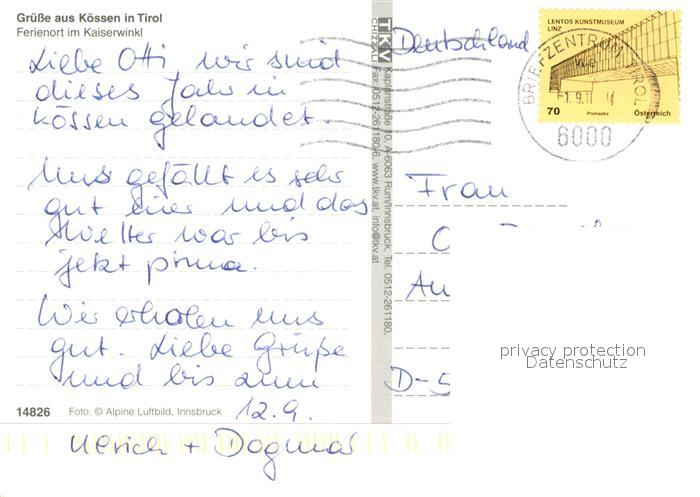 Grüße aus Kössen in Tirol
Ferienort im Kaiserwinkl
Liebe Otti, wir sind
dieses Jahr in
Kössen gelandet.
Uns gefällt es sehr
gut hier und das
Wetter war bis
jetzt prima.
Wir erholen uns
gut. Liebe Grüße
und bis zum
12.9.
Ulrich + Dagmar
14826 Foto: © Alpine Luftbild, Innsbruck
TKV
CHIZZALI Kaplanstraße 10, A-6063 Rum/Innsbruck, Tel. 0512-261180,
Fax 0512-261180/6, www.tkv.at, info@tkv.at
Deutschland
LENTOS KUNSTMUSEUM
LINZ
70 Prohaska Österreich
BRIEFZENTRUM TIROL
6000
Frau
D-5
privacy protection
Datenschutz